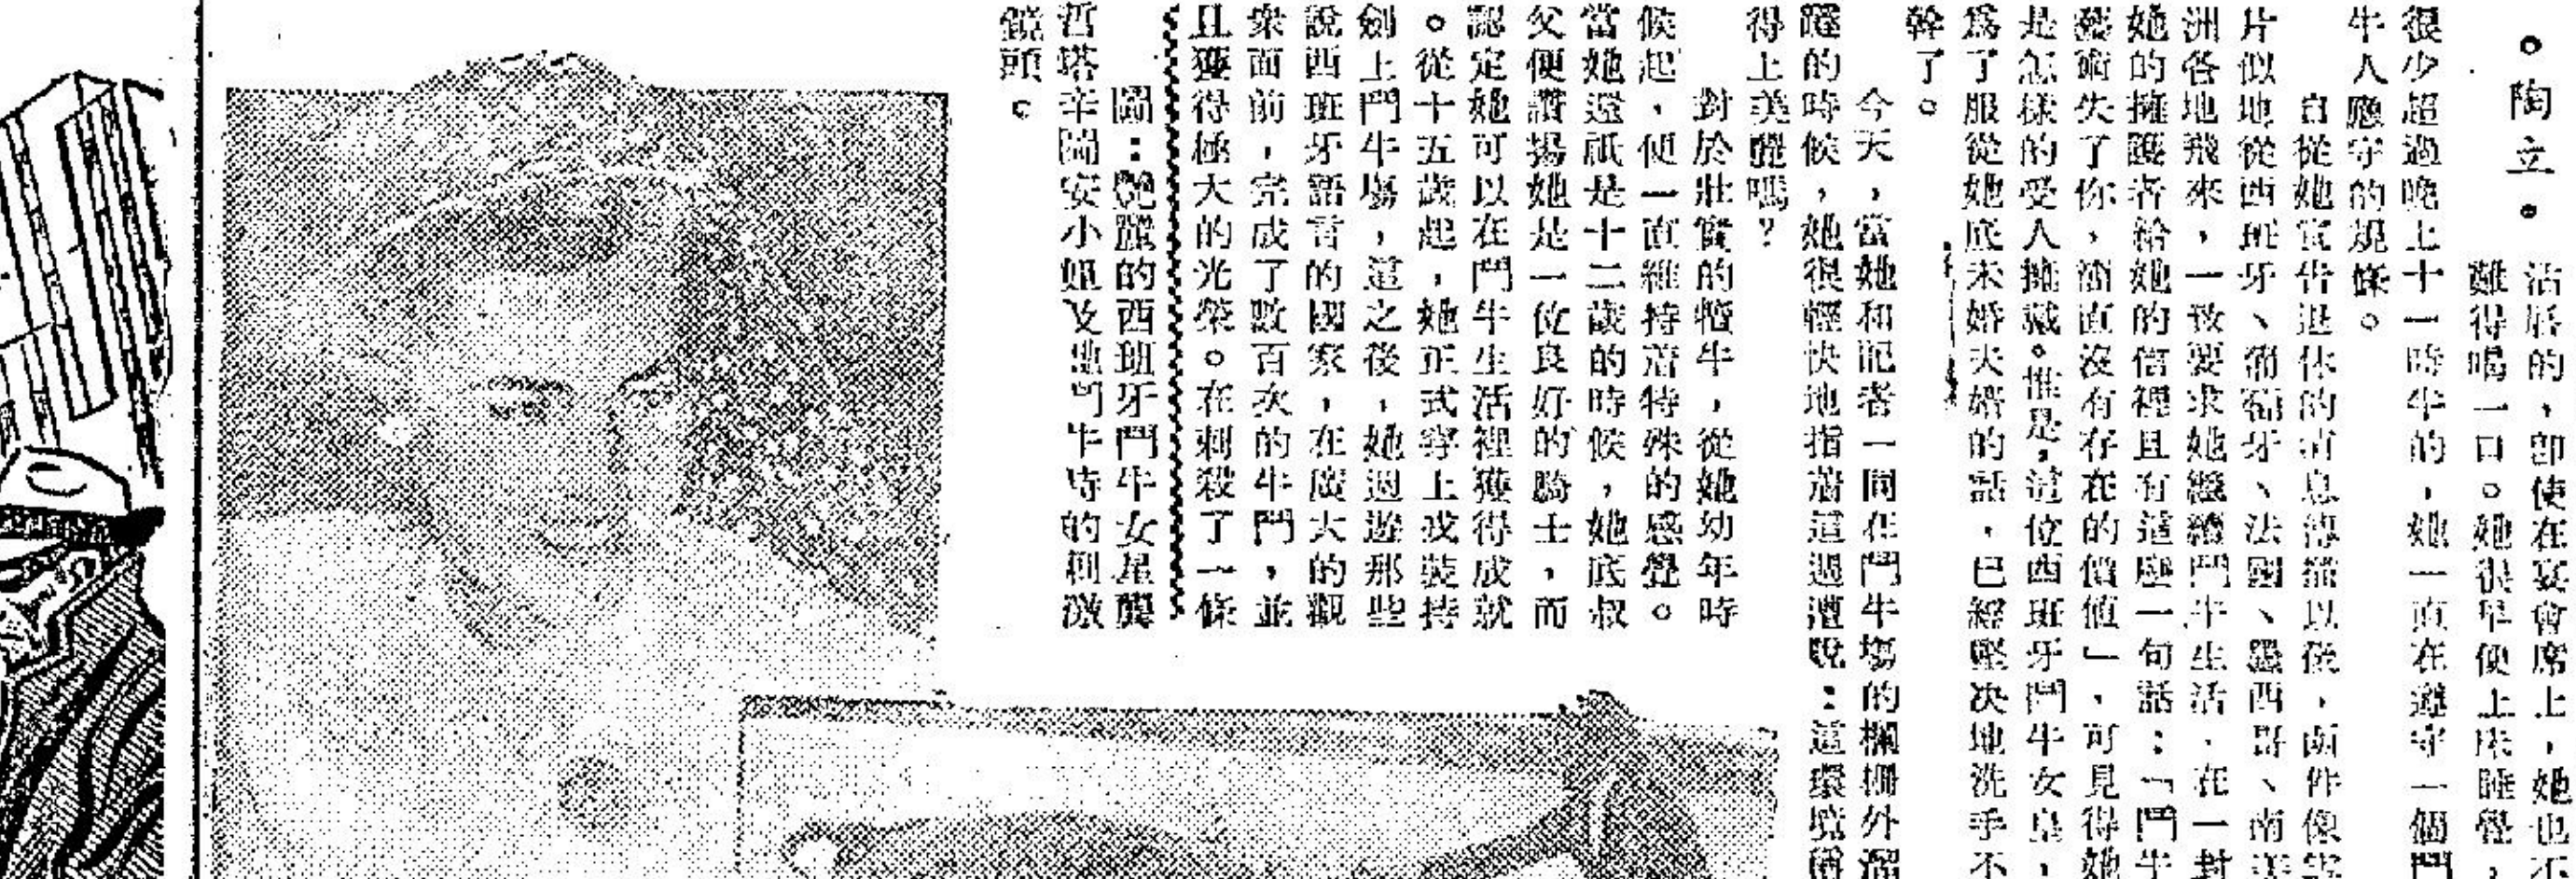 。陶立。
活居的，即使在宴會席上，她也不
難得喝一口。她很早便上床睡覺，
很少超過晚上十一時半的，她一直在遵守一個鬥
牛人應守的規條。
自從她宣告退休的消息傳播以後，函件像雪
片似地從西班牙、葡萄牙、法國、墨西哥、南美
洲各地飛來，一致要求她繼續鬥牛生活．在一對
她的擁護者給她的信裡且有這麼一句話：「鬥牛
藝術失了你，簡直沒有存在的價值」，可見得她
是怎樣的受人擁戴。惟是，這位西班牙鬥牛女皇，
爲了服從她底未婚夫婿的話，已經堅决地洗手不
幹了。
今天，當她和記者一同在鬥牛塲的欄柵外溜
躂的時候，她很輕快地指着這週遭說：這環境
得上美麗嗎？
對於壯實的犢牛，從她幼年時
候起，便一直維持着特殊的感覺。
當她還祇是十二歲的時候，她底叔
父便讚揚她是一位良好的騎士，而
認定她可以在鬥牛生活裡獲得成就
。從十五歲起，她正式穿上戎裝持
劍上鬥牛塲，這之後，她週遊那些
說西班牙語言的國家，在廣大的觀
衆面前，完成了數百次的牛鬥，並
且獲得極大的光榮。在刺殺了一條
圖：艷麗的西班牙鬥牛女星龔
哲塔辛圖安小姐及她鬥牛時的刺激
鏡頭。